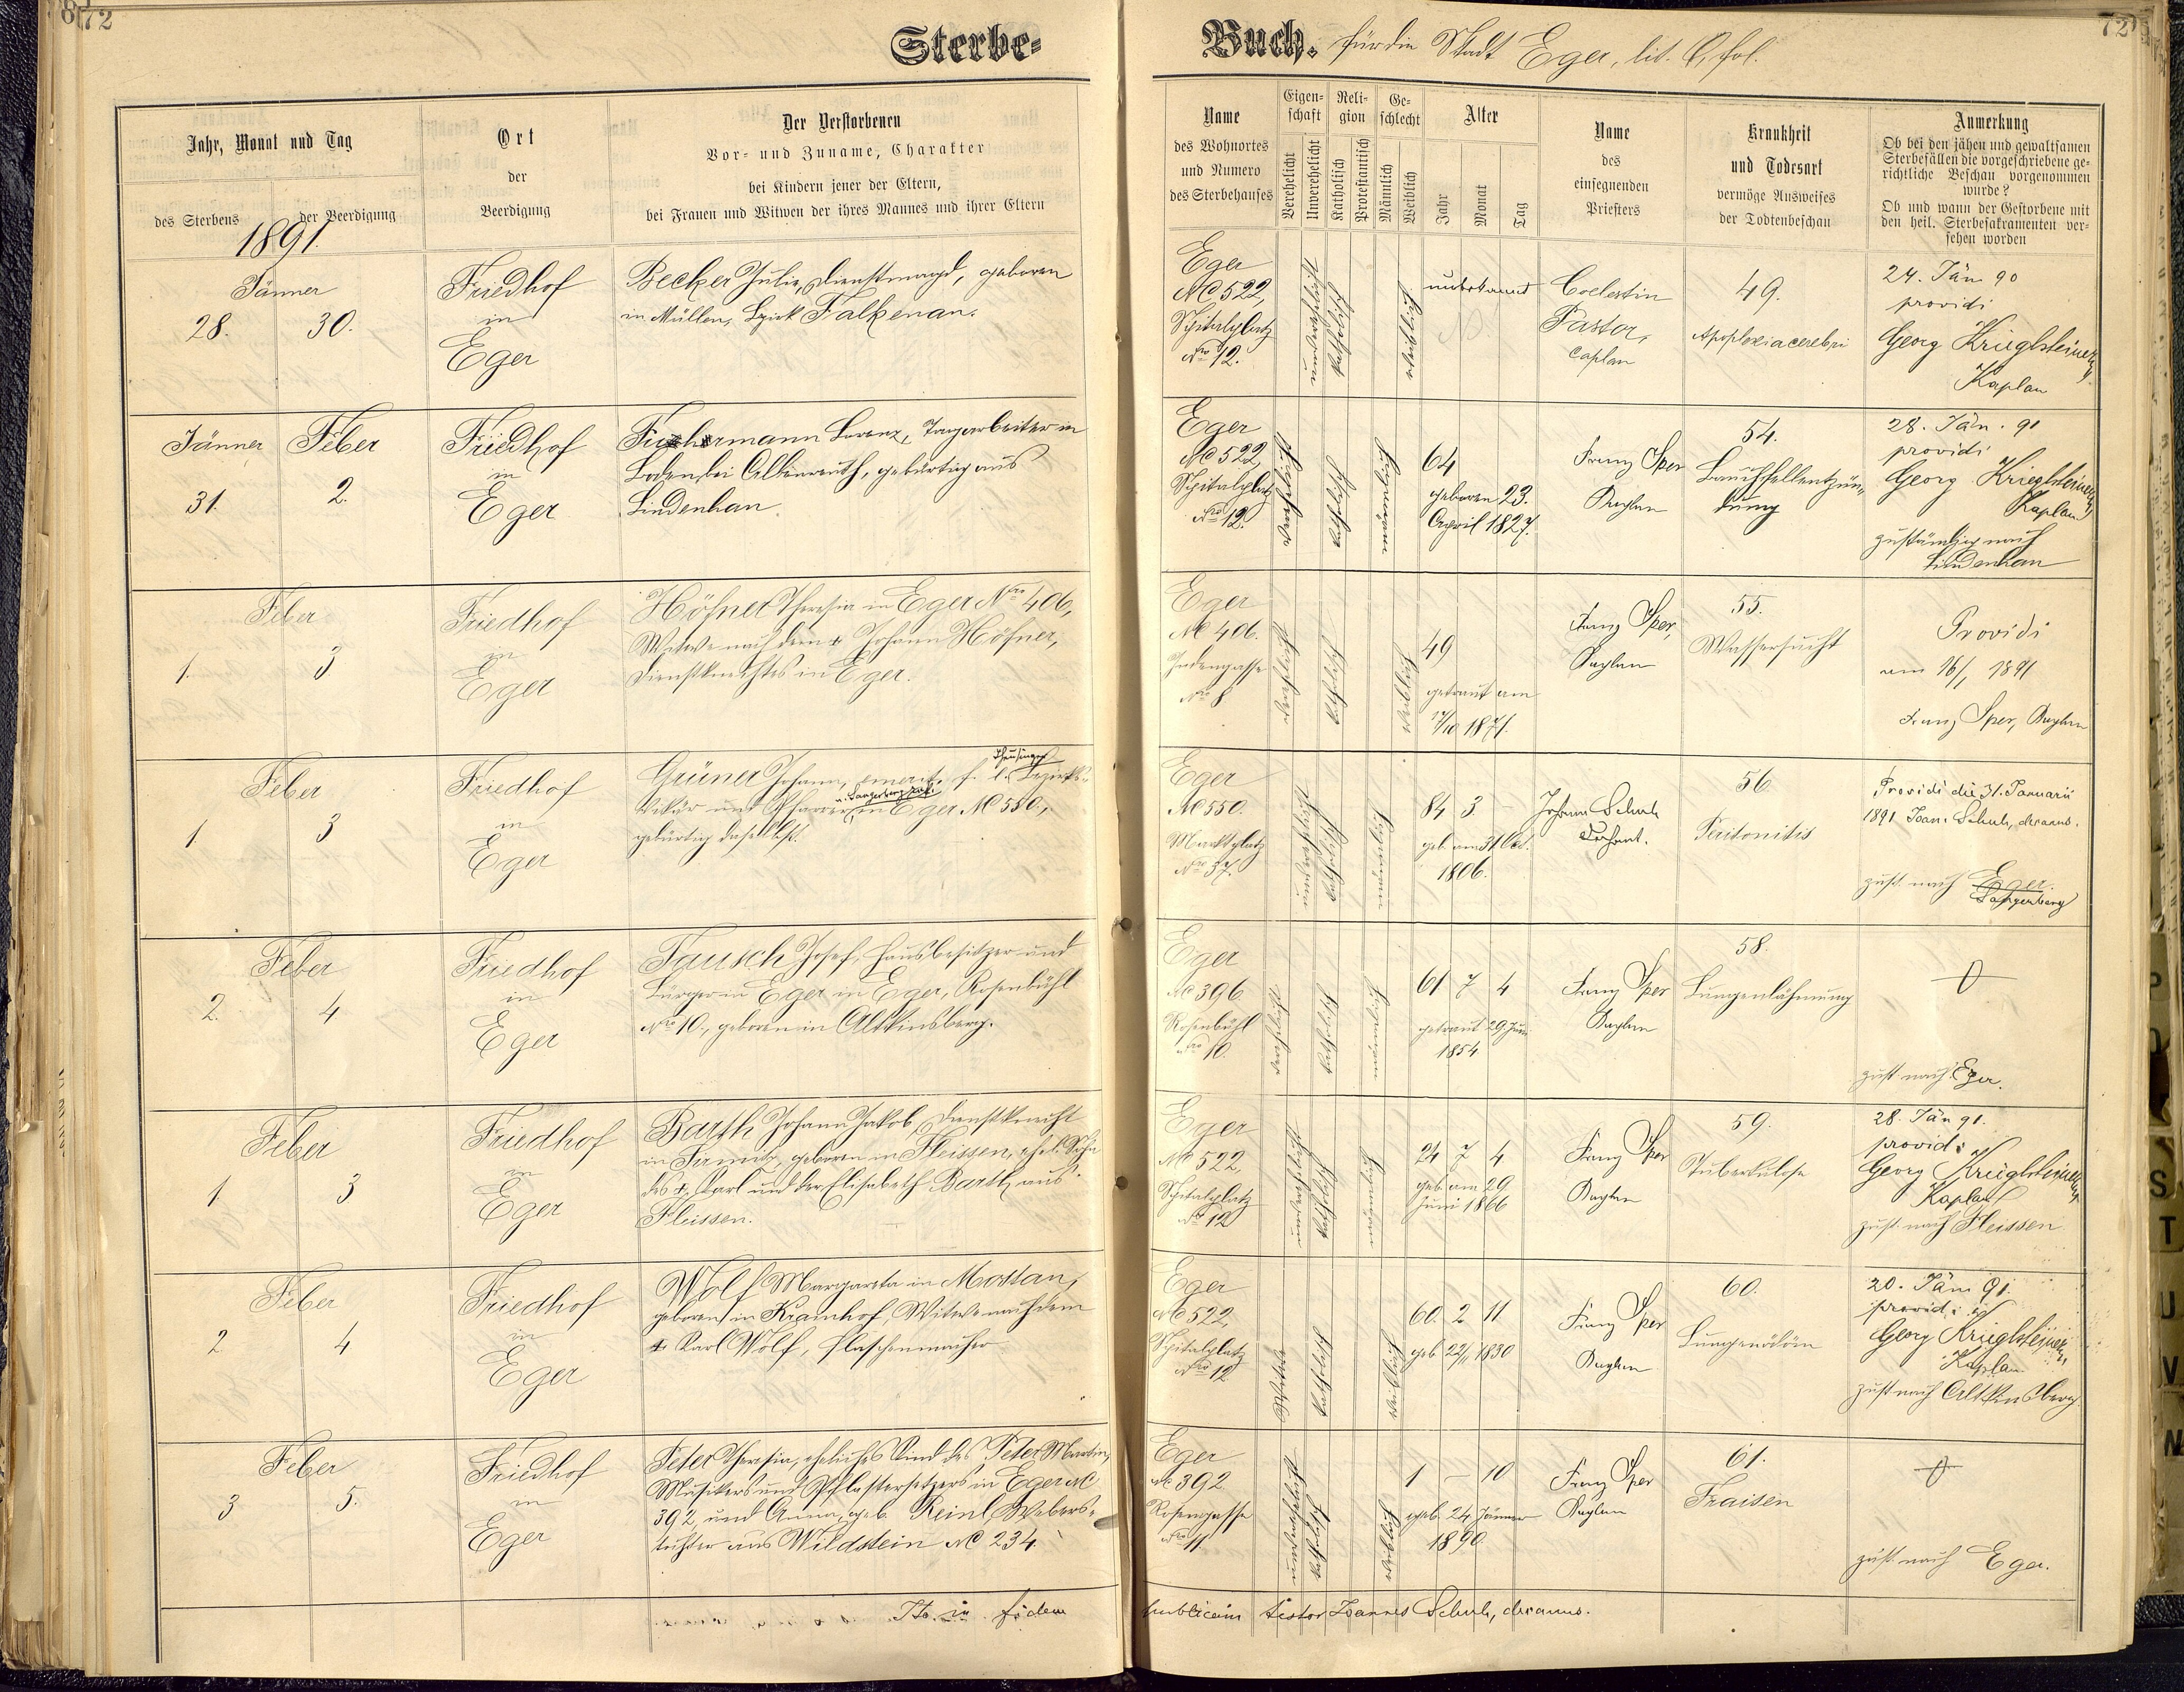 72
Sterbe-
Buch. für die Stadt Eger, lit. fol.
72
Jahr, Monat und Tag
des Sterbens
der Beerdigung
1891
Ort
der
Beerdigung
Der Verstorbenen
Vor- und Zuname, Charakter
bei Kindern jener der Eltern,
bei Frauen und Witwen der ihres Mannes und ihrer Eltern
Name
des Wohnortes
und Numero
des Sterbehauses
Eigen-
schaft
Verehelicht
Unverehelicht
Reli-
gion
Katholisch
Protestantisch
Ge-
schlecht
Männlich
Weiblich
Alter
Jahr
Monat
Tag
Name
des
einsegnenden
Priesters
Krankheit
und Todesart
vermöge Ausweises
der Todtenbeschau
Anmerkung
Ob bei den jähen und gewaltsamen
Sterbefällen die vorgeschriebene ge-
richtliche Beschau vorgenommen
wurde?
Ob und wann der Gestorbene mit
den heil. Sterbesakramenten ver-
sehen worden
Jänner
28. 30.
Friedhof
in
Eger
Becker Julie, Dienstmagd, geboren
in Müllen, Bezirk Falkenau.
Eger
NC 522,
Spitalplatz
Nro 12.
unverehelicht
katholisch
weiblich
unbekannt
Coelestin
Pastor,
Caplan
49.
Apoplexia cerebri
24. Jän 90
providi
Georg Krieglsteiner,
Kaplan
Jänner Feber
31. 2.
Friedhof
in
Eger
Fuhrmann Lorenz, Tagarbeiter in
Boden bei Albenreuth, gebürtig aus
Lindenhau.
Eger
NC 522,
Spitalplatz
Nro 12.
verehelicht
katholisch
männlich
64
geboren 23.
April 1827.
Franz Sper
Kaplan
54.
Bauchfellentzün-
dung
28. Jän. 91
providi
Georg Krieglsteiner,
Kaplan
zuständig nach
Lindenhau
Feber
1. 3
Friedhof
in
Eger
Höfner Theresia in Eger Nro 406,
Witwe nach dem + Johann Höfner,
Dienstknechtes in Eger.
Eger
NC 406.
Judengasse
Nro 8
verehelicht
katholisch
weiblich
49
getraut am
17/10 1871.
Franz Sper,
Kaplan
55.
Wassersucht
Providi
am 16/1 1891
Franz Sper, Kaplan
Feber
1 3
Friedhof
in
Eger
Theusinger
Grüner Johann, emerit. f. e. Bezirks-
Vikär und Pfarrer, in Eger NC 550,
gebürtig daselbst.
Eger
NC 550.
Marktplatz
Nro 37.
unverehelicht
katholisch
männlich
84 3 –
geb. am 31 Okt.
1806.
Johann Schuh
Dechant.
56
Peritonitis
Providi die 31. Januarii
1891 Joan. Schuh, decanus.
zust. nach Eger.
Sangerberg
Feber
2. 4
Friedhof
in
Eger
Tausch Josef, Hausbesitzer und
Bürger in Eger in Eger, Rosenbühl
Nro 10., geboren in Altkinsberg.
Eger
NC 396
Rosenbühl
Nro 10.
verehelicht
katholisch
männlich
61 7 4
getraut 29. Juni
1854
Franz Sper
Kaplan
58.
Lungenlähmung
zust nach Eger.
Feber
1 3
Friedhof
in
Eger
Barth Johann Jakob, Dienstknecht
in Sirmitz, geboren in Fleissen, ehel. Sohn
des + Karl und der Elisabeth Barth aus
Fleissen.
Eger
NC 522,
Spitalplatz
Nro 12
unverehelicht
katholisch
männlich
24 7 4
geb. am 29.
Juni 1866
Franz Sper
Kaplan
59.
Tuberkulose
28. Jän 91.
providi
Georg Krieglsteiner,
Kaplan
zust. nach Fleissen
Feber
2 4
Friedhof
in
Eger
Wolf Margareta in Mostau,
geboren in Kramhof, Witwe nach dem
+ Karl Wolf, Flaschenmacher
Eger
NC 522,
Spitalplatz
Nro 12
Witwe
katholisch
weiblich
60. 2 11
geb. 22/11 1830
Franz Sper
Kaplan
60.
Lungenödem
20. Jän 91.
providi
Georg Krieglsteiner,
Kaplan
zust nach Altkinsberg
Feber
3 5.
Friedhof
in
Eger
Peter Theresia, eheliches Kind des Peter Martin,
Musikers und Pflastersetzers in Eger NC
392, und Anna, geb. Reinl, Webers-
tochter aus Wildstein NC 234.
Eger
NC 392
Rosengasse
Nro 11
unverehelicht
katholisch
weiblich
1 – 10
geb. 24 Jänner
1890.
Franz Sper
Kaplan
61.
Fraisen
zust. nach Eger.
In fidem publicam testor Joannes Schuh, decanus.